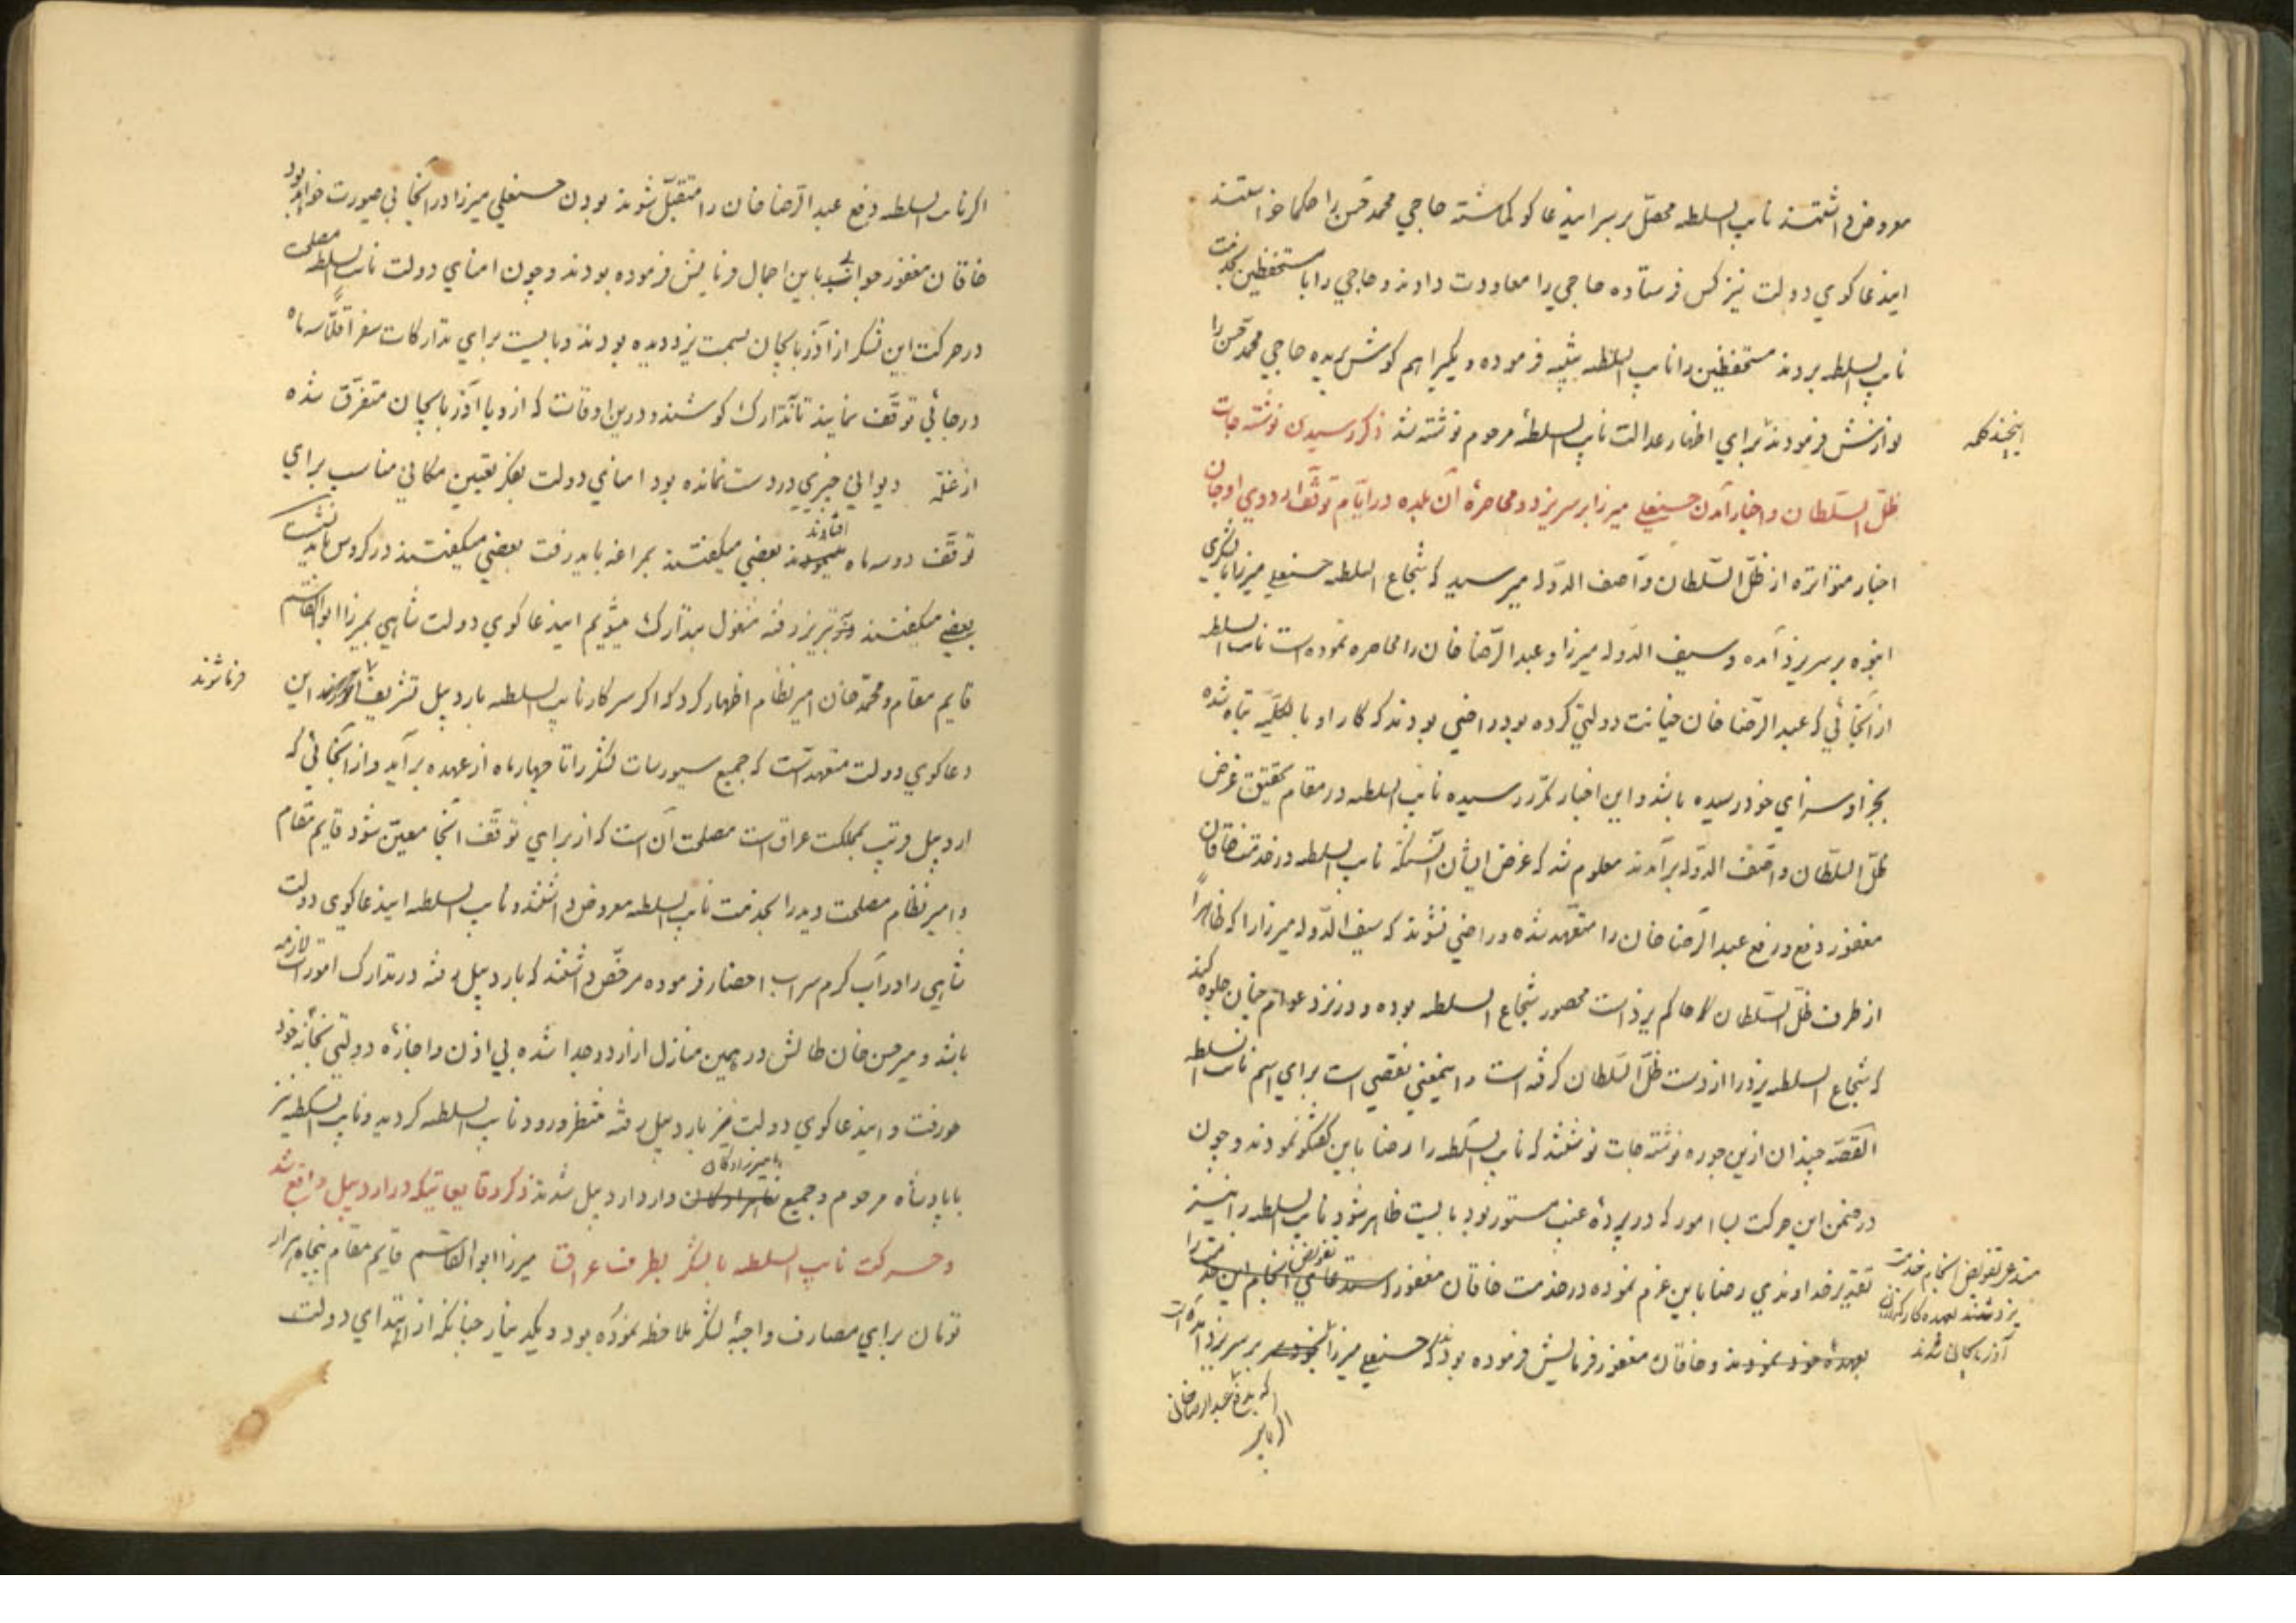 معروض داشتند نایب السلطه محصل بر سر ایندعا کو کماشته حاجي محمد حسن را حکما خواستند
ایندعا کوي دولت نیز کس فرستاده حاجي را معاودت دادند و حاجي را با مستحفظین بخدمت
نایب السلطه بردند مستحفظین را نایب السلطه تنبیه فرموده و یکیرا هم کوش بریده حاجي محمد حسن را
نوازنش فرمودند براي اظهار عدالت نایب السلطهٔ مرحوم نوشته شد ذکر رسیدن نوشته جات
اینچند کلمه
ظل السلطان و اخبار آمدن حسنعلي میرزا بر سر یزد و محاصرهٔ آن بلده در ایام توقف اردوي اوجان
اخبار متواتره از ظل السلطان و آصف الدوله میرسید که شجاع السلطه حسنعلي میرزا با لشکري
انبوه بر سر یزد آمده و سیف الدوله میرزا و عبد الرضا خان را محاصره نموده است نایب السلطه
از آنجائي که عبد الرضا خان خیانت دولتي کرده بود راضي بودند که کار او بالکلیه تباه شده
بجزا و سزاي خود رسیده باشد و این اخبار مکرر رسیده نایب السلطه در مقام تحقیق غرض
ظل السلطان و آصف الدوله برآمدند معلوم شد که غرض ایشان آنستکه نایب السلطه در خدمت خاقان
مغفور دفع و رفع عبد الرضا خان را متعهد شده و راضي نشوند که سیف الدوله میرزا را که ظاهراً
از طرف ظل السلطان حاکم یزد است محصور شجاع السلطه بوده و در نزد عوام چنان جلوه کند
که شجاع السلطه یزد را از دست ظل السلطان کرفته است و اینمعني نقصي است براي اسم نایب السلطه
القصه چندان ازین جوره نوشته جات نوشتند که نایب السلطه را رضا باین کفتکو نمودند و چون
در ضمن این حرکت بسا امور که در پردهٔ غیب مستور بود بایست ظاهر شود نایب السلطه را نیز
تقدیر خداوندي رضا باین عزم نموده در خدمت خاقان مغفور استدعاي تفویض انجام این خدمت را
مستدعي تفویض انجام خدمت
یزد شدند بعهده کارکذاران
آذربایجان شدند
بعهدهٔ خود نمودند و خاقان مغفور فرمایش فرموده بودند که حسنعلي میرزا بر سر یزد آمده است
که دفع عبد الرضا خان
اکر نایب السلطه دفع عبد الرضا خان را متقبل شوند بودن حسنعلي میرزا در آنجا بي صورت خواهد بود
خاقان مغفور جواب باین اجمال فرمایش فرموده بودند و چون امناي دولت نایب السلطه مصلحت
در حرکت این لشکر از آذربایجان بسمت یزد دیده بودند و بایست براي تدارکات سفر اقلاً سه ماه
در جائي توقف نمایند تا بتدارک کوشند و درین اوقات که اردو با آذربایجان متفرق شده
از غله دیواني چیزي در دست نمانده بود امناي دولت بفکر تعیین مکاني مناسب براي
توقف دو سه ماه افتادند بعضي میکفتند بمراغه باید رفت بعضي میکفتند در کروس باید نشست
بعضي میکفتند در تبریز رفته مشغول بتدارک میشویم ایندعا کوي دولت شاهي بمیرزا ابو القاسم
قایم مقام و محمد خان امیر نظام اظهار کرد که اکر سرکار نایب السلطه باردبیل تشریف فرما شوند این
دعا کوي دولت متعهد است که جمیع سیورسات لشکر را تا چهار ماه از عهده برآید و از آنجائي که
اردبیل قریب بمملکت عراق است مصلحت آن است که از براي توقف آنجا معین شود قایم مقام
و امیر نظام مصلحت دید را بخدمت نایب السلطه معروض داشتند و نایب السلطه ایندعا کوي دولت
شاهي را در آب کرم سراب احضار فرموده مرخص داشتند که باردبیل رفته در تدارک امورات لازمه
باشد و میر حسن خان طالش در همین منازل از اردو جدا شده بي اذن و اجازهٔ دولتي بخانهٔ خود
رفت و ایندعا کوي دولت نیز باردبیل رفته منتظر ورود نایب السلطه کردید و نایب السلطه نیز
با پادشاه مرحوم و جمیع امیرزادکان وارد اردبیل شدند ذکر وقایعاتیکه در اردبیل واقع شد
و حرکت نایب السلطه با لشکر بطرف عراق میرزا ابو القاسم قایم مقام پنجاه هزار
تومان براي مصارف واجبهٔ لشکر ملاحظه نموده بود و یکدینار چنانکه از ابتداي دولت